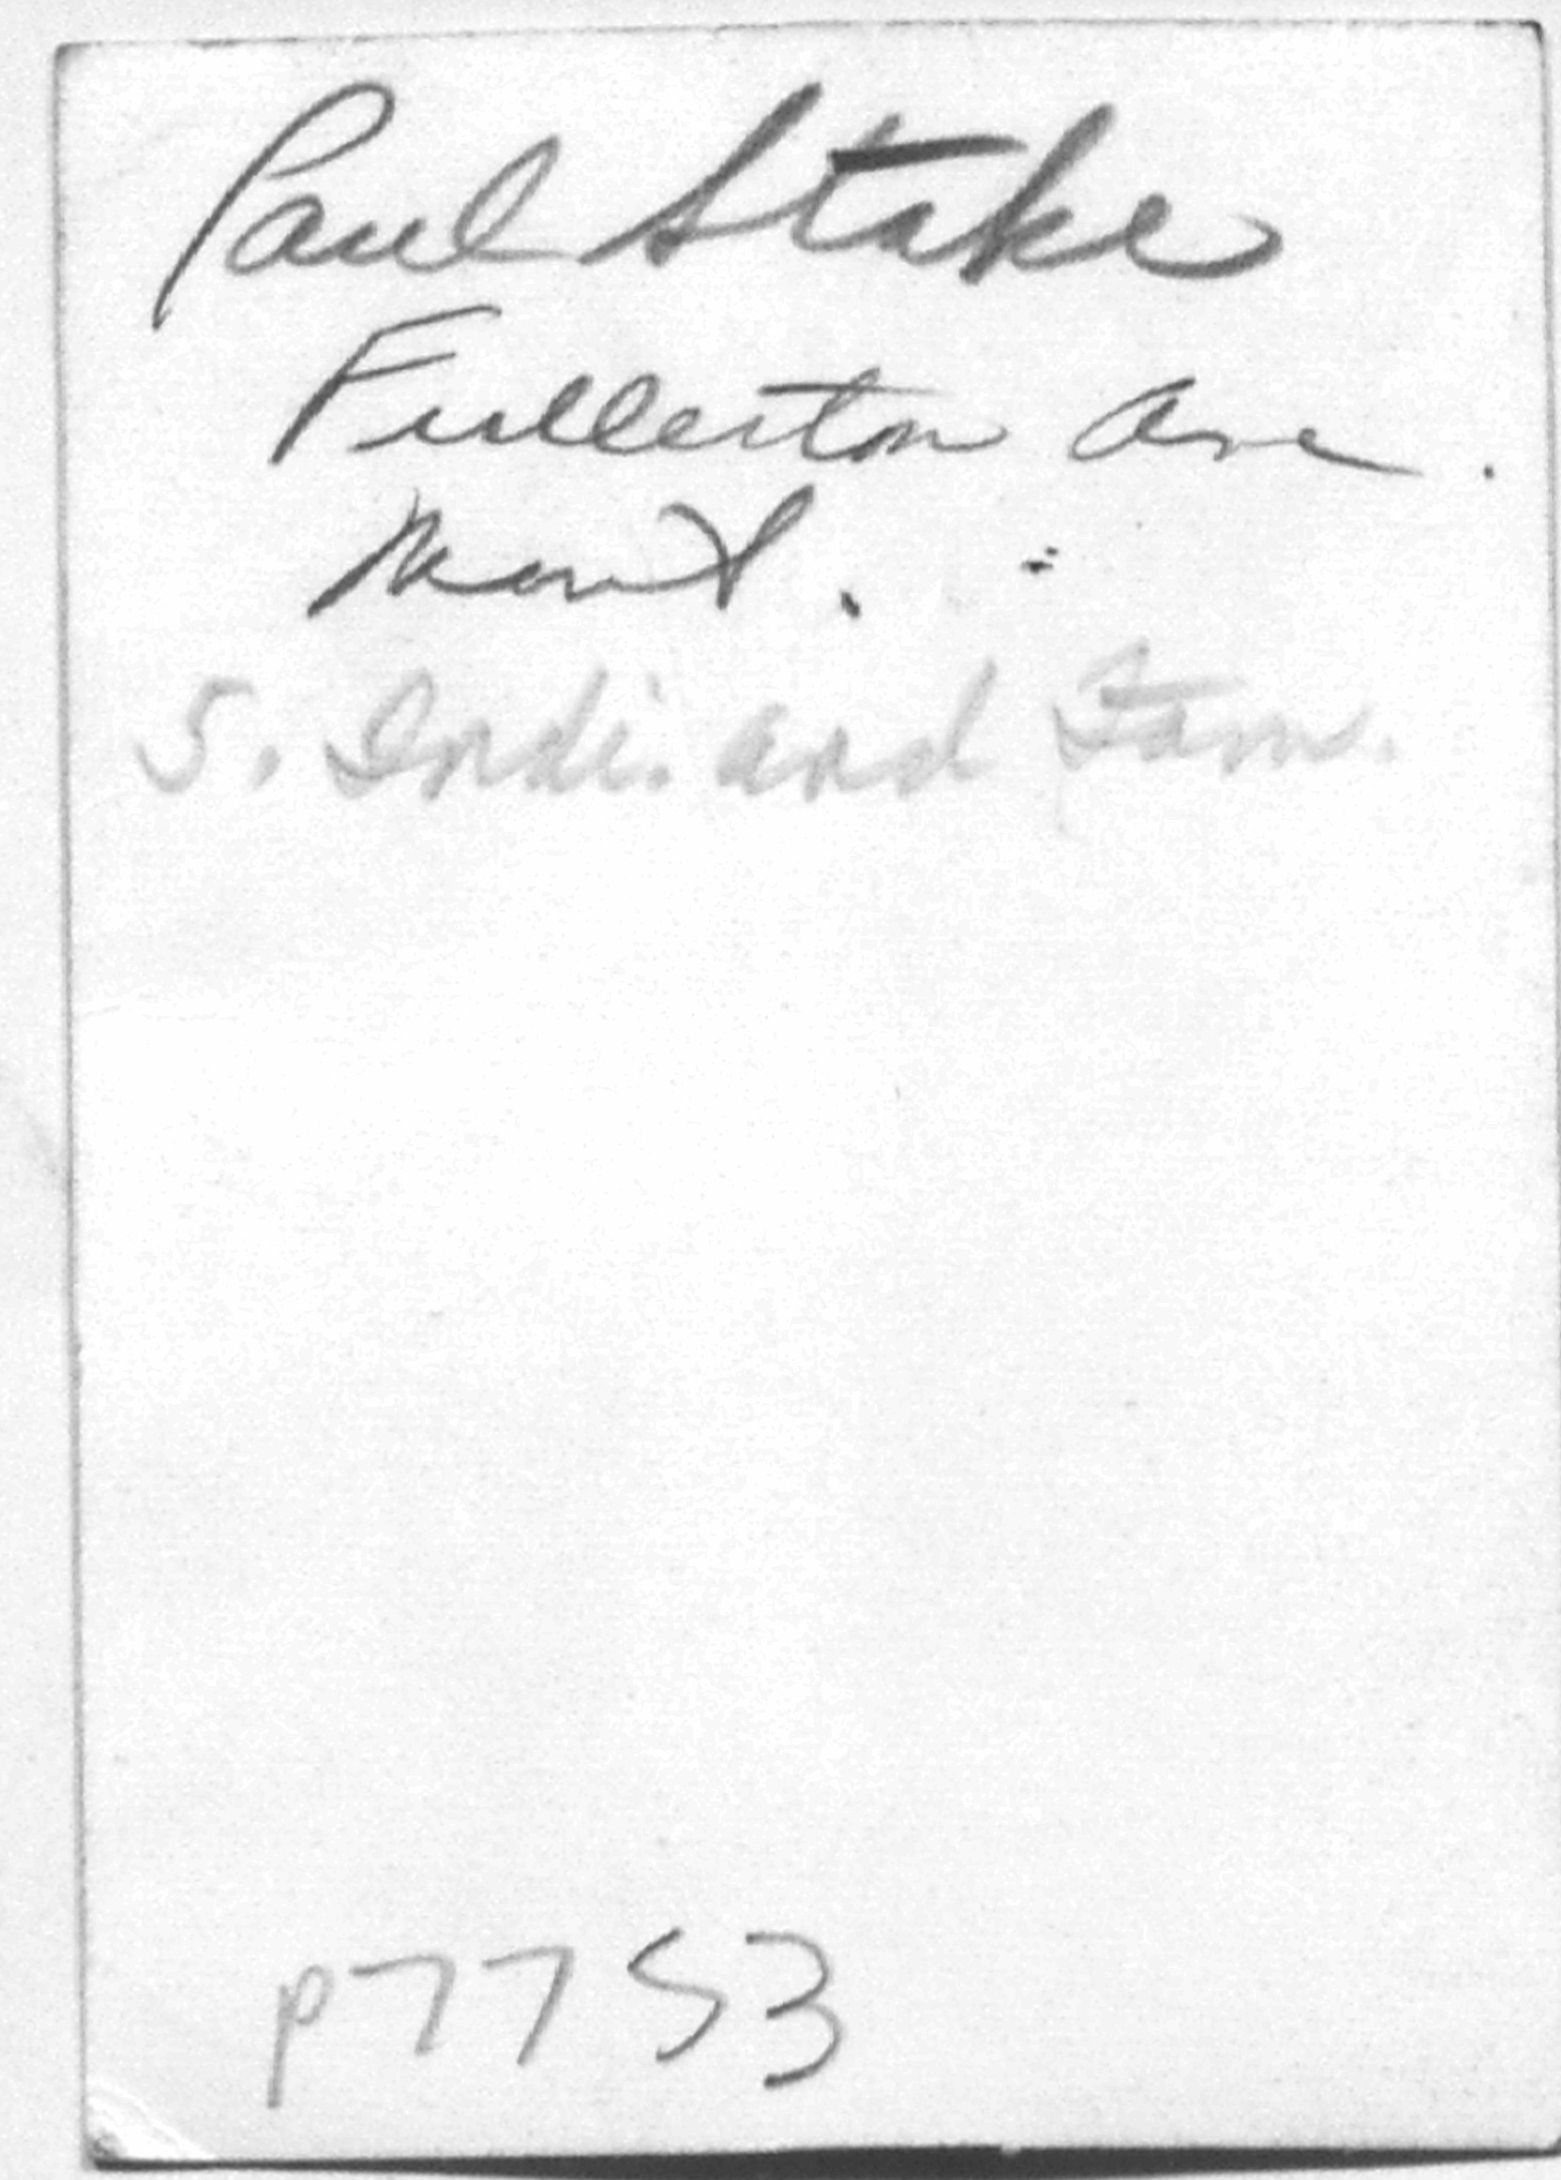 Paul Stake
Fullerton Ave.
Mont.
S. Indi. and Fam.
P7753